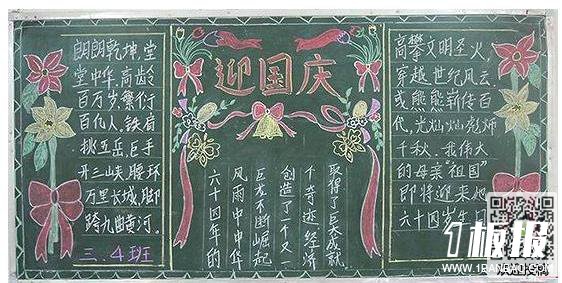 朗朗乾坤,堂
堂中华,高龄
百万岁,繁衍
百亿人,铁肩
挑五岳,巨手
开三峡,腰环
万里长城,脚
跨九曲黄河。
三.4班
迎国庆
六十四年的
风雨中中华
巨龙不断崛起
创造了一个又一
个奇迹 经济
取得了巨大成就
高攀文明圣火,
穿越世纪风云,
或熊熊薪传百
代,光灿灿彪炳
千秋,我伟大
的母亲"祖国"
即将迎来她
六十四岁生日
1板报
WWW.1BANBAO.COM